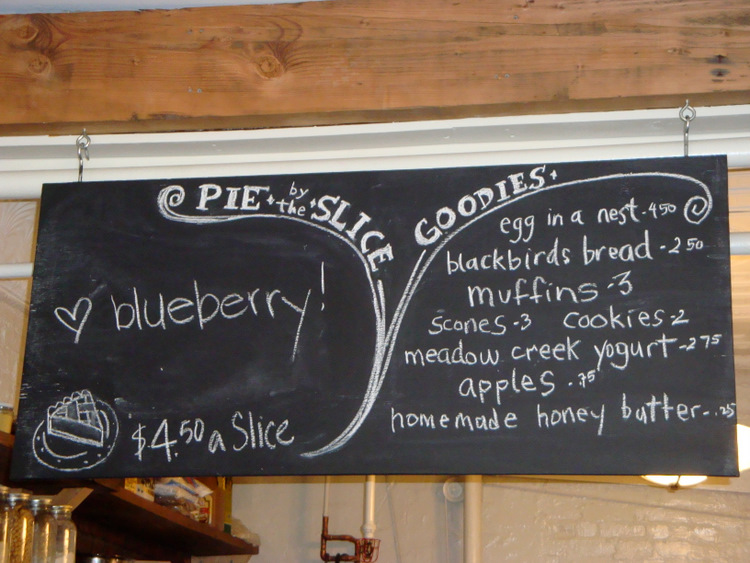 PIE by the SLICE
♡ blueberry!
$4.50 a Slice
GOODIES
egg in a nest - 450
blackbirds bread - 250
muffins - 3
scones - 3 cookies - 2
meadow creek yogurt - 275
apples - .75
homemade honey butter - .25